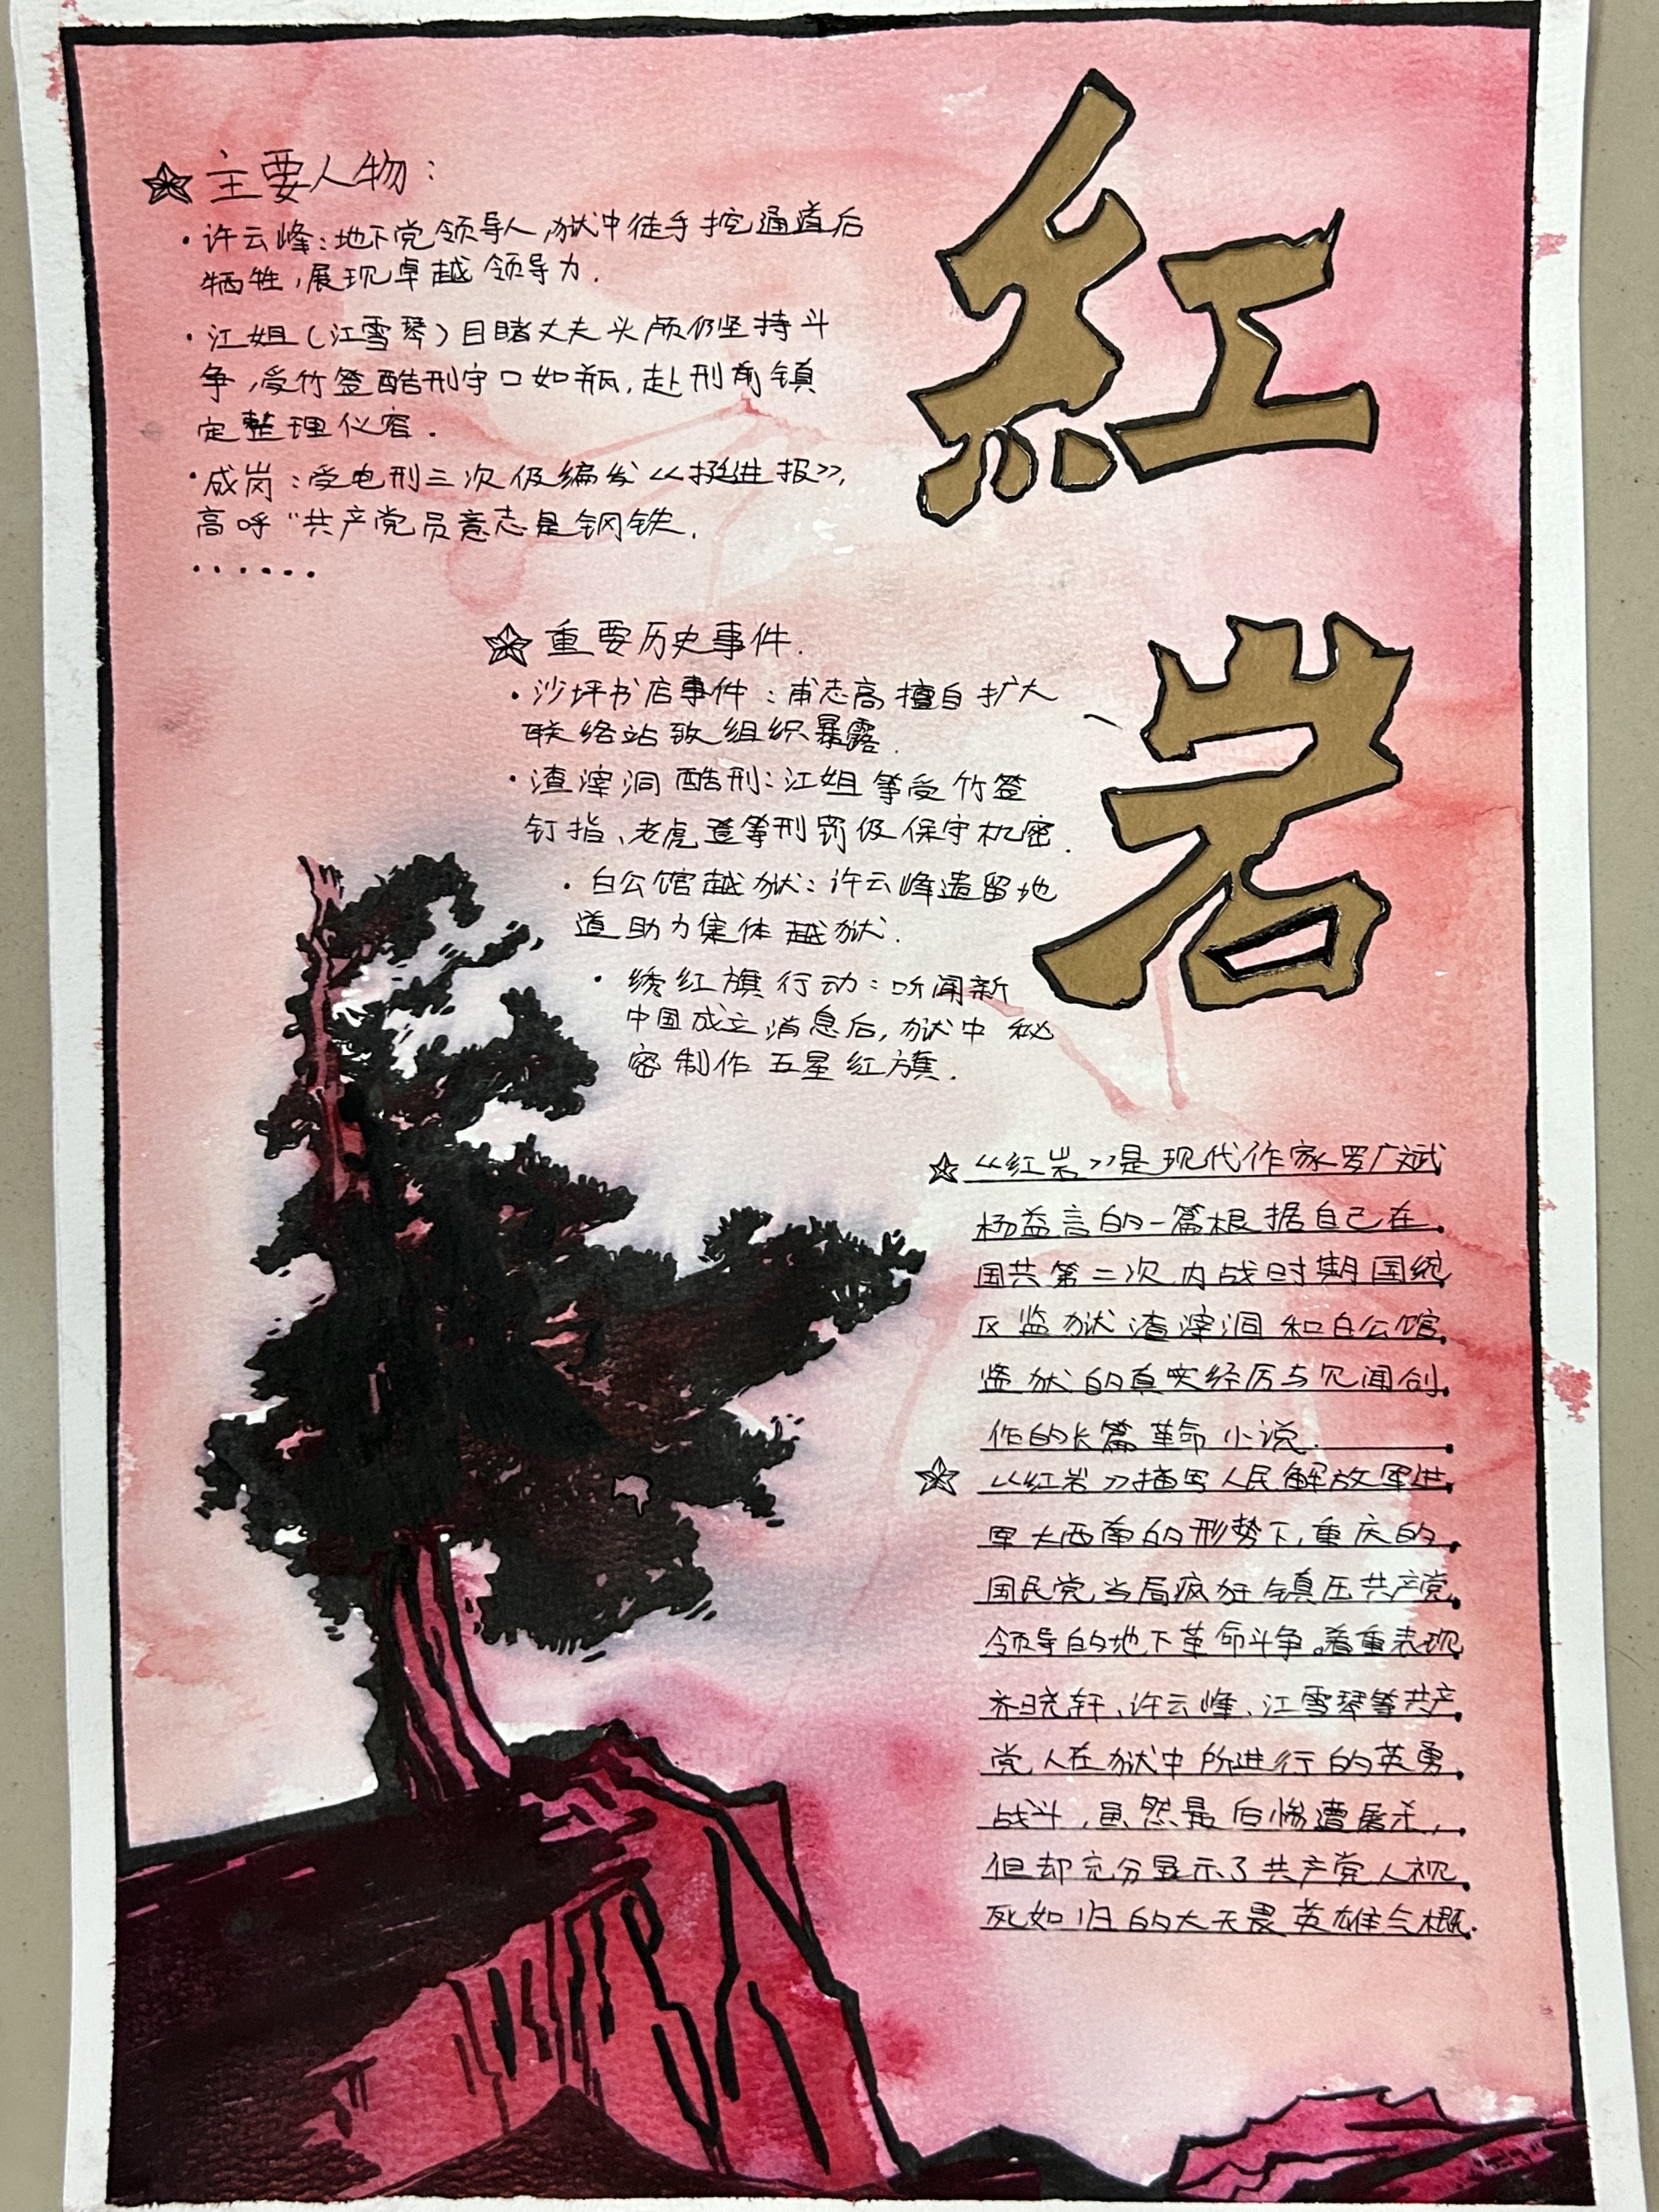 红
岩
主要人物：
·许云峰：地下党领导人，狱中徒手挖通道后
牺牲，展现卓越领导力.
·江姐（江雪琴）目睹丈夫头颅仍坚持斗
争，受竹签酷刑守口如瓶，赴刑前镇
定整理仪容.
·成岗：受电刑三次仍编发《挺进报》，
高呼“共产党员意志是钢铁.
······
重要历史事件.
·沙坪书店事件：甫志高擅自扩大
联络站致组织暴露.
·渣滓洞酷刑：江姐等受竹签
钉指、老虎凳等刑罚仍保守机密.
·白公馆越狱：许云峰遗留地
道助力集体越狱.
·绣红旗行动：听闻新
中国成立消息后，狱中秘
密制作五星红旗.
《红岩》是现代作家罗广斌
杨益言的一篇根据自己在
国共第二次内战时期国统
区监狱渣滓洞和白公馆
监狱的真实经历与见闻创
作的长篇革命小说.
《红岩》描写人民解放军进
军大西南的形势下，重庆的
国民党当局疯狂镇压共产党
领导的地下革命斗争。着重表现
齐晓轩、许云峰、江雪琴等共产
党人在狱中所进行的英勇
战斗，虽然最后惨遭屠杀，
但却充分显示了共产党人视
死如归的大无畏英雄气概.